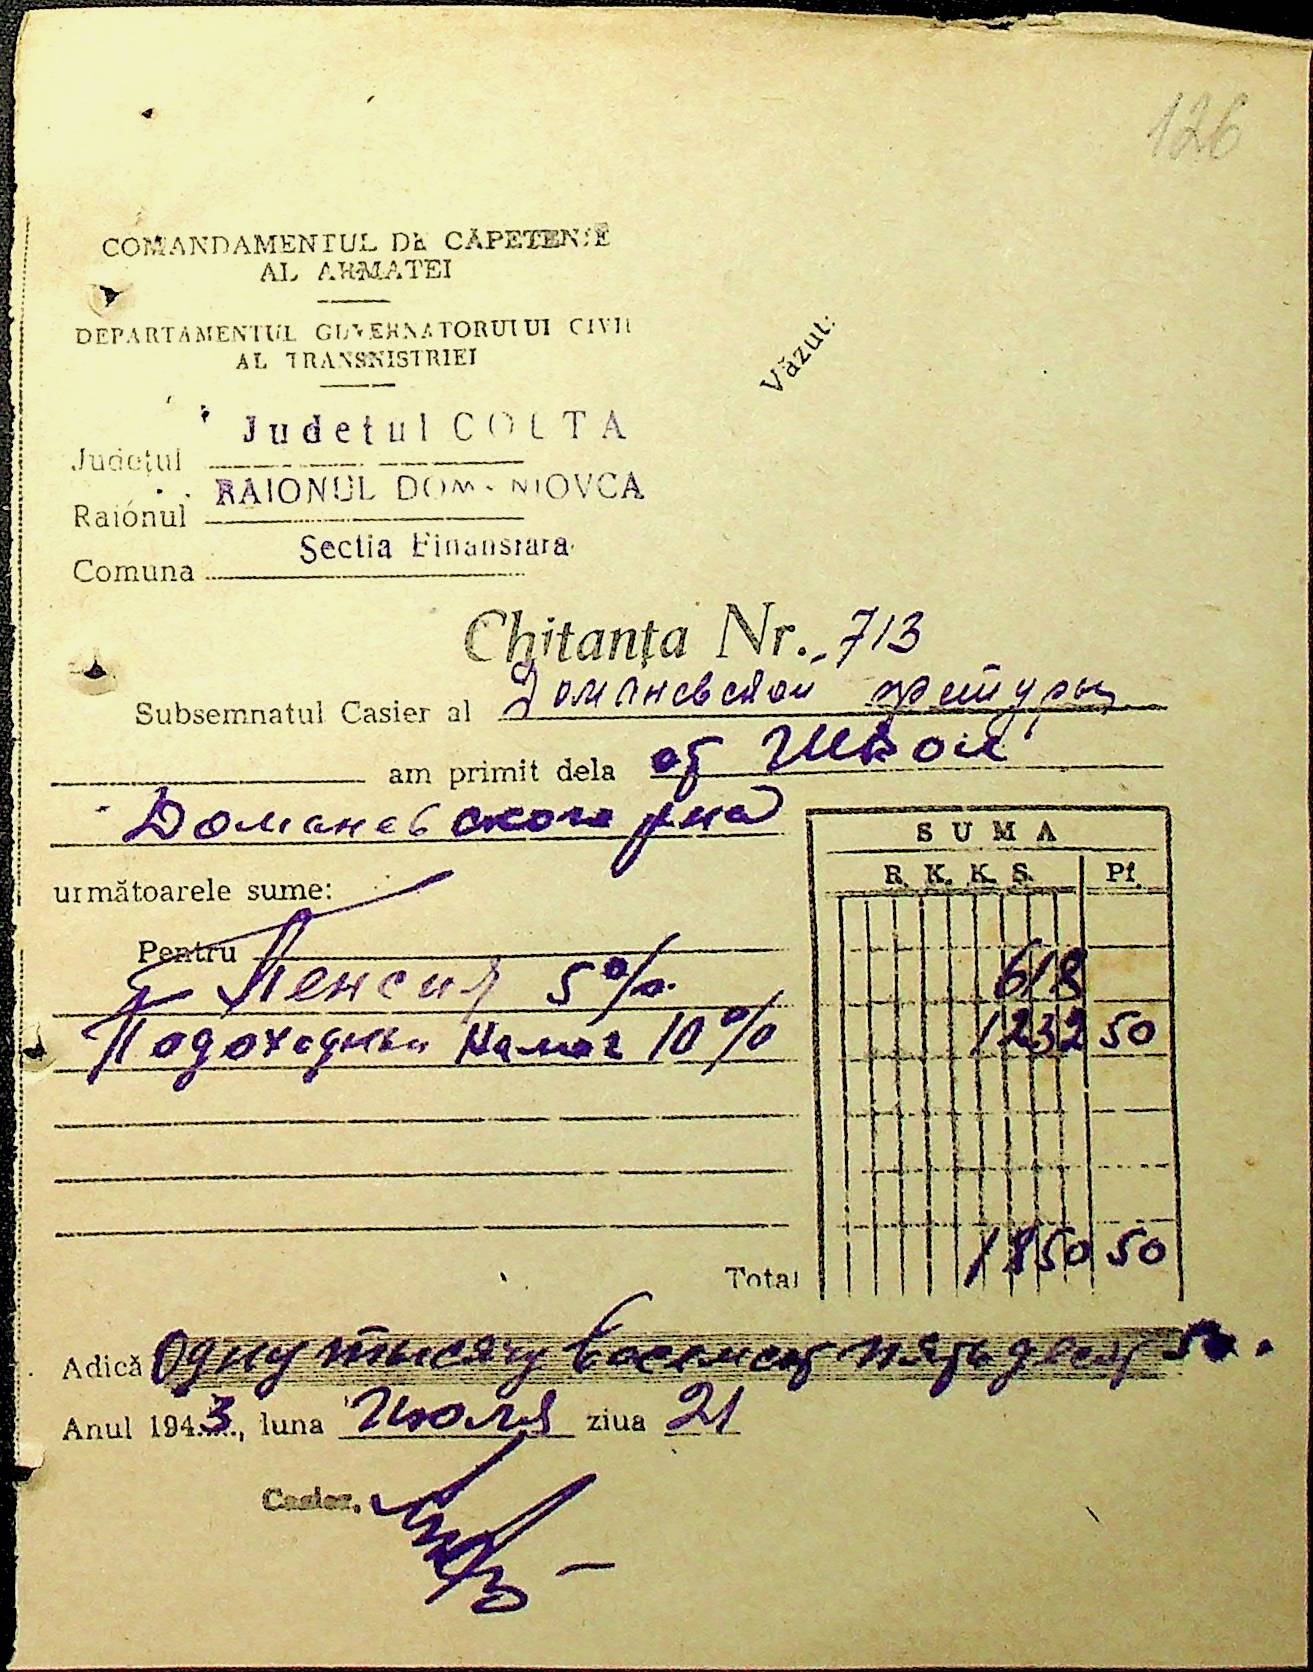 126
COMANDAMENTUL DE CAPETENIE
AL ARMATEI
DEPARTAMENTUL GUVERNATORULUI CIVIL
AL TRANSNISTRIEI
Văzut:
Județul Judetul COLTA
Raionul RAIONUL DOMANIOVCA
Comuna Sectia Finansiara
Chitanța Nr. 713
Subsemnatul Casier al Доманевской претуры
am primit dela от Школ
Доманевского р-на
următoarele sume:
SUMA
R. K. K. S. Pf.
Pentru
Пенсия 5% 618
Подоходный налог 10% 1232 50
Total 1850 50
Adică Одну тысячу восемсот пятьдесят 50.
Anul 1943, luna Июля ziua 21
Casier,